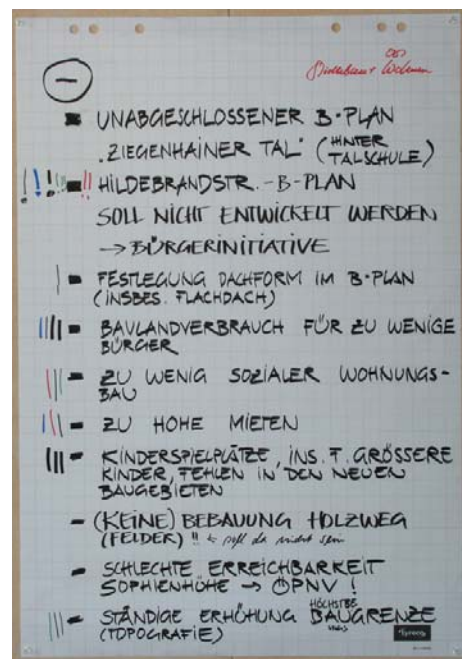 Wohnen
–
UNABGESCHLOSSENER B-PLAN
"ZIEGENHAINER TAL" (HINTER TALSCHULE)
HILDEBRANDSTR. - B-PLAN
SOLL NICHT ENTWICKELT WERDEN
→ BÜRGERINITIATIVE
FESTLEGUNG DACHFORM IM B-PLAN
(INSBES. FLACHDACH)
BAULANDVERBRAUCH FÜR ZU WENIGE
BÜRGER
ZU WENIG SOZIALER WOHNUNGS-
BAU
ZU HOHE MIETEN
KINDERSPIELPLÄTZE, INS. F. GRÖSSERE
KINDER, FEHLEN IN DEN NEUEN
BAUGEBIETEN
(KEINE) BEBAUUNG HOLZWEG
(FELDER) !! soll da nicht sein
SCHLECHTE ERREICHBARKEIT
SOPHIENHÖHE → ÖPNV !
STÄNDIGE ERHÖHUNG HÖCHSTE BAUGRENZE
(TOPOGRAFIE)